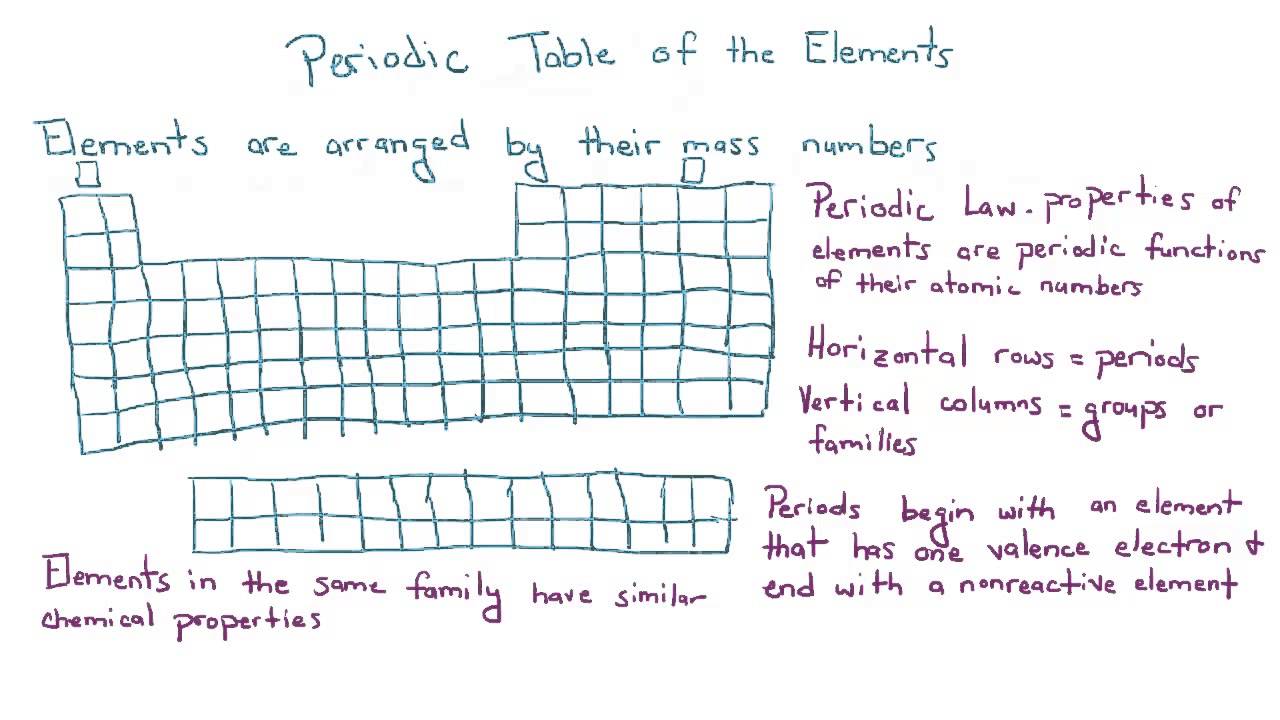 Periodic Table of the Elements
Elements are arranged by their mass numbers
Periodic Law. properties of
elements are periodic functions
of their atomic numbers
Horizontal rows = periods
Vertical columns = groups or
families
Periods begin with an element
that has one valence electron +
end with a nonreactive element
Elements in the same family have similar
chemical properties